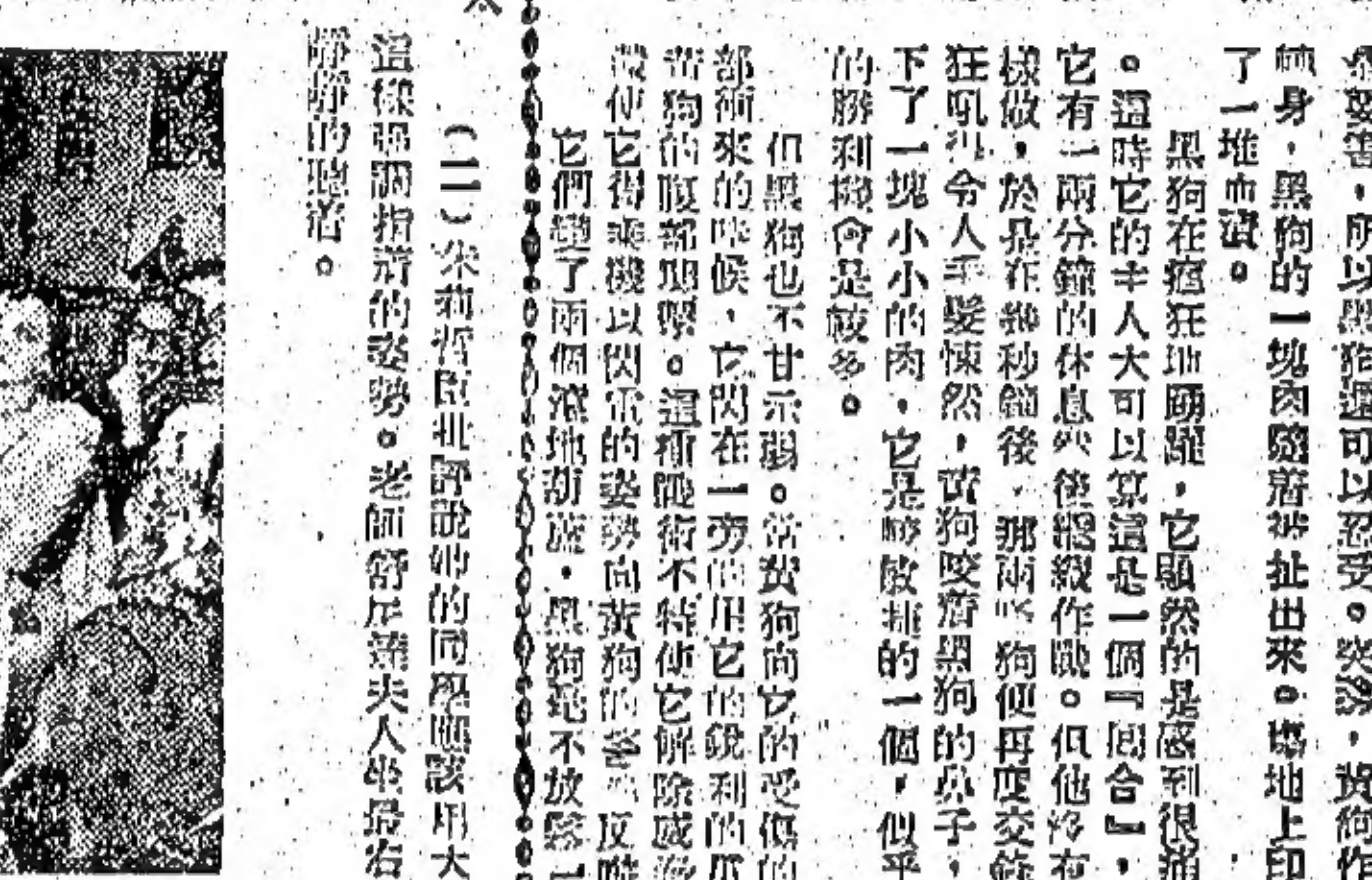 所以黑狗還可以忍受。突然,黃狗作
身,黑狗的一塊肉隨着被扯出來。塲地上印
了一堆血漬。
黑狗在瘋狂地跳躍,它顯然的是感到很痛
。這時它的主人大可以算這是一個『回合』,
它有一兩分鐘的休息然後繼續作戰。但他沒有
樣做,於是在幾秒鐘後,那兩隻狗便再度交鋒
狂吼得令人毛髮悚然,黃狗咬着黑狗的鼻子,
下了一塊小小的肉,它是較敏捷的一個,似乎
的勝利機會是較多。
但黑狗也不甘示弱。當黃狗向它的受傷的
部衝來的時候,它閃在一旁的用它的銳利的爪
黃狗的腹部還擊。這種戰術不特使它解除威脅
使它得乘機以閃電的姿勢向黃狗的 反噬
它們變了兩個滾地葫蘆,黑狗毫不放鬆一
(二)朱莉 批評說她的同學應該用大
這樣强調指着的姿勢。老師舒 夫人坐最右
靜靜的聽着。